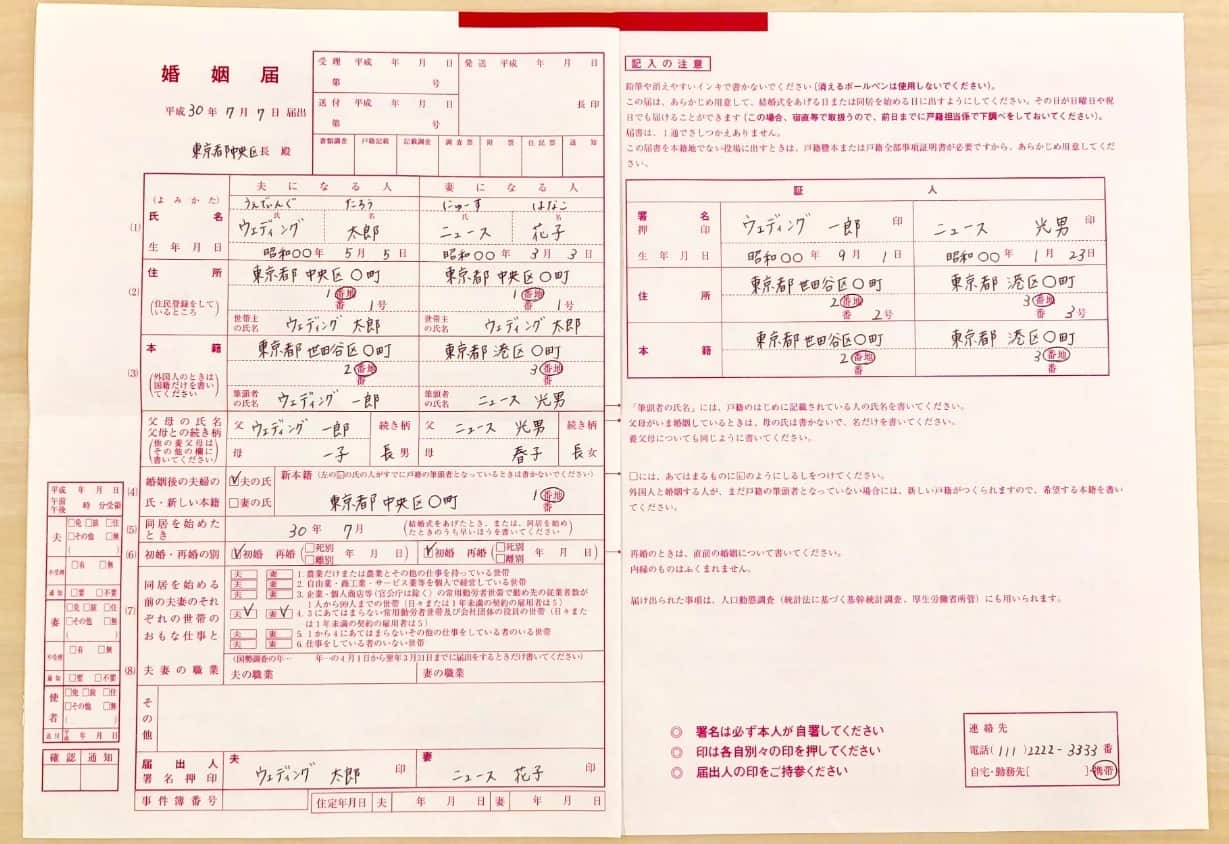 婚姻届
平成30年7月7日届出
東京都中央区長 殿
受理 平成 年 月 日
第 号
送付 平成 年 月 日
第 号
発送 平成 年 月 日
長印
書類調査 戸籍記載 記載調査 調査票 附票 住民票 通知
夫になる人 妻になる人
(よみかた) うえでぃんぐ たろう にゅーす はなこ
(1) 氏名 氏 名 氏 名
ウェディング 太郎 ニュース 花子
生年月日 昭和〇〇年 5月 5日 昭和〇〇年 3月 3日
住所 東京都 中央区 〇町 東京都 中央区 〇町
(2) (住民登録をしているところ) 1 番地 番 1号 1 番地 番 1号
世帯主の氏名 ウェディング 太郎 世帯主の氏名 ウェディング 太郎
本籍 東京都 世田谷区 〇町 東京都 港区 〇町
(3) (外国人のときは国籍だけを書いてください) 2 番地 番 3 番地 番
筆頭者の氏名 ウェディング 一郎 筆頭者の氏名 ニュース 光男
父母の氏名 父母との続き柄 (他の養父母はその他の欄に書いてください)
父 ウェディング 一郎 続き柄 父 ニュース 光男 続き柄
母 一子 長男 母 春子 長女
(4) 婚姻後の夫婦の氏・新しい本籍 ☑夫の氏 □妻の氏
新本籍(左の☑の氏の人がすでに戸籍の筆頭者となっているときは書かないでください)
東京都 中央区 〇町 1 番地 番
(5) 同居を始めたとき 30年 7月 (結婚式をあげたとき、または、同居を始めたときのうち早いほうを書いてください)
(6) 初婚・再婚の別 ☑初婚 再婚(□死別 □離別 年 月 日) ☑初婚 再婚(□死別 □離別 年 月 日)
(7) 同居を始める前の夫妻のそれぞれの世帯のおもな仕事と
夫 妻 1.農業だけまたは農業とその他の仕事を持っている世帯
夫 妻 2.自由業・商工業・サービス業等を個人で経営している世帯
夫 妻 3.企業・個人商店等(官公庁は除く)の常用勤労者世帯で勤め先の従業者数が1人から99人までの世帯(日々または1年未満の契約の雇用者は5)
夫✓ 妻✓ 4.3にあてはまらない常用勤労者世帯及び会社団体の役員の世帯(日々または1年未満の契約の雇用者は5)
夫 妻 5.1から4にあてはまらないその他の仕事をしている者のいる世帯
夫 妻 6.仕事をしている者のいない世帯
(8) 夫妻の職業 (国勢調査の年… 年…の4月1日から翌年3月31日までに届出をするときだけ書いてください)
夫の職業 妻の職業
その他
届出人署名押印 夫 ウェディング 太郎 印 妻 ニュース 花子 印
事件簿番号 住定年月日 夫 年 月 日 妻 年 月 日
平成 年 月 日
午前 午後 時 分受領
夫 □免 □旅 □住 □その他 □無 ( )
不受理 □有 □無
通知 □要 □不要
妻 □免 □旅 □住 □その他 □無 ( )
不受理 □有 □無
通知 □要 □不要
使者 □免 □旅 □住 □その他 □無 ( )
送付 平成 年 月 日
確認 通知
記入の注意
鉛筆や消えやすいインキで書かないでください(消えるボールペンは使用しないでください)。
この届は、あらかじめ用意して、結婚式をあげる日または同居を始める日に出すようにしてください。その日が日曜日や祝
日でも届けることができます(この場合、宿直等で取扱うので、前日までに戸籍担当係で下調べをしておいてください)。
届書は、1通でさしつかえありません。
この届書を本籍地でない役場に出すときは、戸籍謄本または戸籍全部事項証明書が必要ですから、あらかじめ用意してくだ
さい。
証人
署名押印 ウェディング 一郎 印 ニュース 光男 印
生年月日 昭和〇〇年 9月 1日 昭和〇〇年 1月 23日
住所 東京都 世田谷区 〇町 東京都 港区 〇町
2 番地 番 2号 3 番地 番 3号
本籍 東京都 世田谷区 〇町 東京都 港区 〇町
2 番地 番 3 番地 番
「筆頭者の氏名」には、戸籍のはじめに記載されている人の氏名を書いてください。
父母がいま婚姻しているときは、母の氏は書かないで、名だけを書いてください。
養父母についても同じように書いてください。
□には、あてはまるものに☑のようにしるしをつけてください。
外国人と婚姻する人が、まだ戸籍の筆頭者となっていない場合には、新しい戸籍がつくられますので、希望する本籍を書い
てください。
再婚のときは、直前の婚姻について書いてください。
内縁のものはふくまれません。
届け出られた事項は、人口動態調査(統計法に基づく基幹統計調査、厚生労働省所管)にも用いられます。
◎ 署名は必ず本人が自署してください
◎ 印は各自別々の印を押してください
◎ 届出人の印をご持参ください
連絡先
電話(111)2222-3333番
自宅・勤務先[ ]・携帯